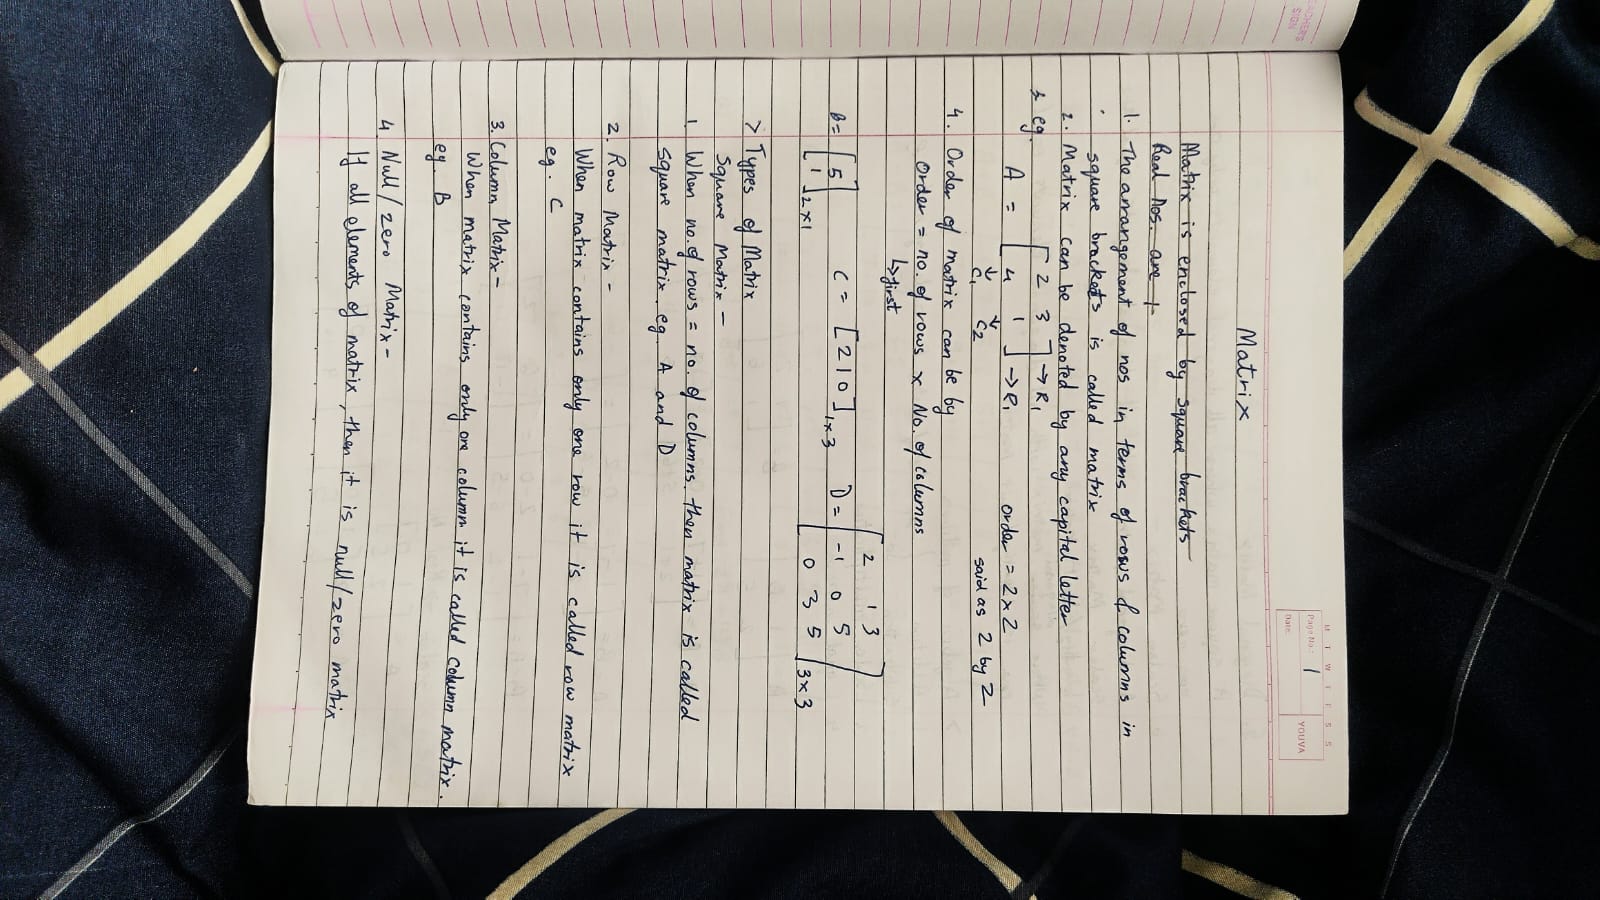 TEACHER'S
SIGN
M T W T F S S
Page No.: 1
Date:
YOUVA
Matrix
Matrix is enclosed by square brackets
Real nos. are
1. The arrangement of nos in terms of rows & columns in
square brackets is called matrix
2. Matrix can be denoted by any capital letter
3 eg.
A = [ 2 3 ] → R₁
[ 4 1 ] → R₁
↓ C₁ ↓ C2
order = 2 x 2
said as 2 by 2
4. Order of matrix can be by
Order = no. of rows x No. of columns
↳ first
B = [ 5
1 ] 2x1
C = [ 2 1 0 ] 1x3
D = [ 2 1 3
-1 0 5
0 3 5 ] 3x3
> Types of Matrix
Square Matrix –
1. When no. of rows = no. of columns. then matrix is called
square matrix. eg. A and D
2. Row Matrix -
When matrix contains only one row it is called row matrix
eg. C
3. Column Matrix –
When matrix contains only one column it is called column matrix.
eg. B
4 Null/zero Matrix –
If all elements of matrix, then it is null/zero matrix